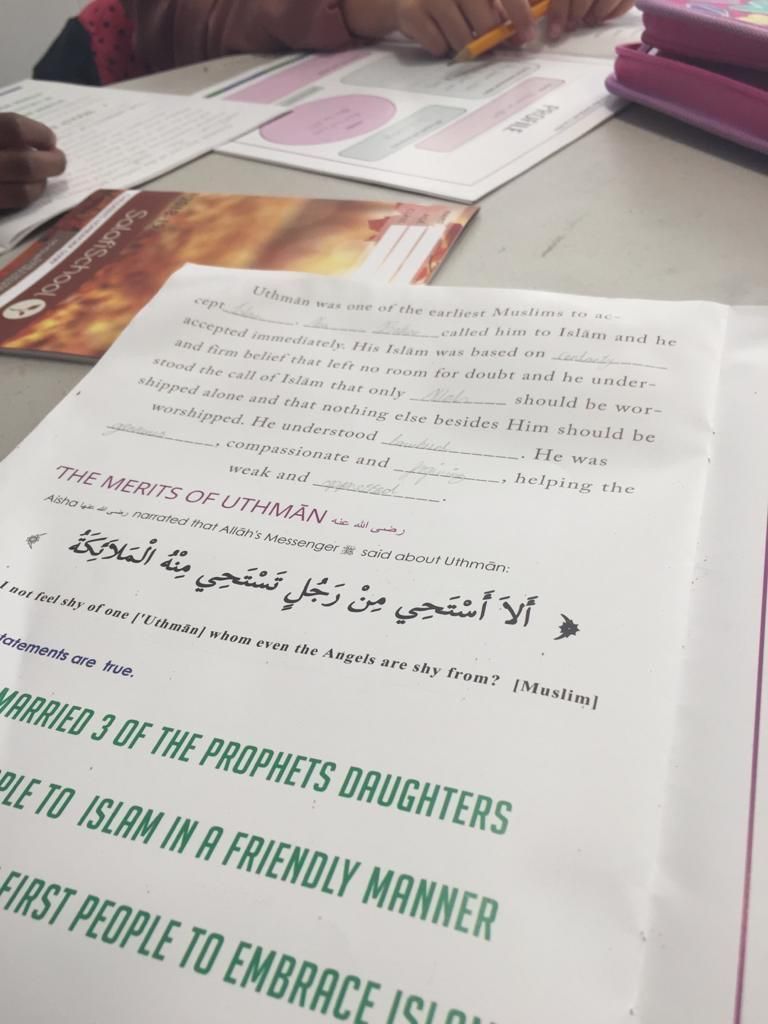 PROFILE
SalafiSchool
Uthmān was one of the earliest Muslims to ac-
cept called him to Islām and he
accepted immediately. His Islām was based on certainty
and firm belief that left no room for doubt and he under-
stood the call of Islām that only Allah should be wor-
shipped alone and that nothing else besides Him should be
worshipped. He understood tawheed. He was
generous, compassionate and, helping the
weak and oppressed.
THE MERITS OF UTHMĀN رضي الله عنه
Aisha رضي الله عنها narrated that Allāh's Messenger ﷺ said about Uthmān:
أَلاَ أَسْتَحِي مِنْ رَجُلٍ تَسْتَحِي مِنْهُ الْمَلاَئِكَةُ
I not feel shy of one ['Uthmān] whom even the Angels are shy from? [Muslim]
tatements are true.
MARRIED 3 OF THE PROPHETS DAUGHTERS
PLE TO ISLAM IN A FRIENDLY MANNER
FIRST PEOPLE TO EMBRACE ISLAM